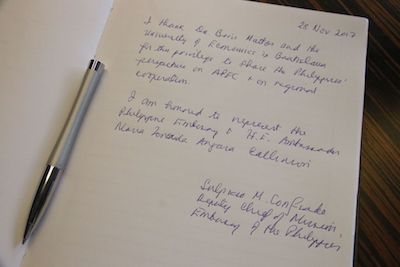 28 Nov 2017
I thank Dr Boris Mattos and the
University of Economics in Bratislava
for the privilege to share the Philippines'
perspective on APEC & on regional
cooperation.
I am honored to represent the
Philippine Embassy & H.E. Ambassador
Maria
Sulpicio M. Confiado
Deputy Chief of Mission,
Embassy of the Philippines